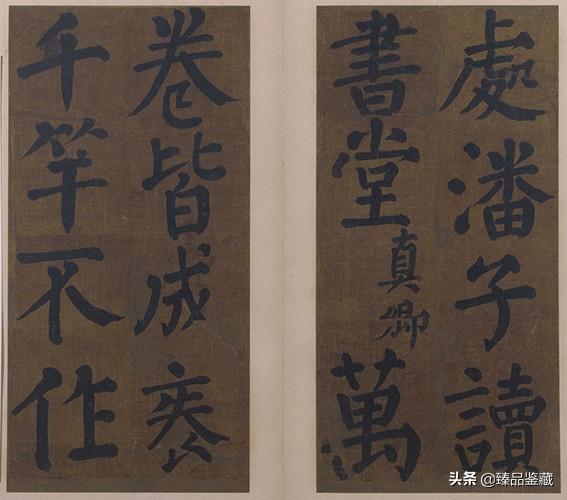 處潘子讀
書堂真卿萬
卷皆成袠
千竿不作
头条 @臻品鉴藏